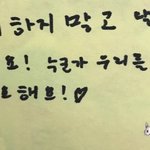 하지 막고 
요! 누군가 우리를
요해요!♡